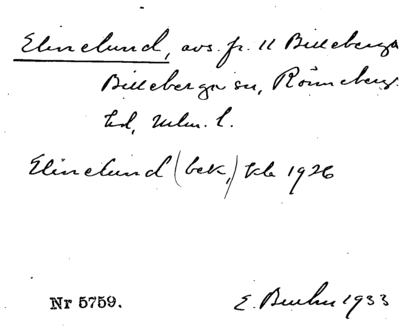 Elinelund, avs. fr. 11 Billeberga
Billeberga sn, Rönneberg.
hd, Mlm. l.
Elinelund (bek,) kb 1926
Nr 5759. E. Bruhn 1933